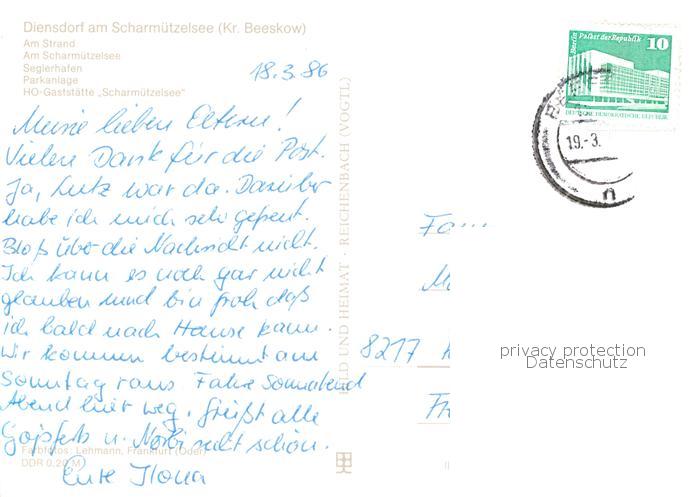 Diensdorf am Scharmützelsee (Kr. Beeskow)
Am Strand
Am Scharmützelsee
Seglerhafen
Parkanlage
HO-Gaststätte „Scharmützelsee"
18.3.86
Meine lieben Eltern!
Vielen Dank für die Post.
Ja, Lutz war da. Darüber
habe ich mich sehr gefreut.
Bloß über die Nachricht nicht.
Ich kann es noch gar nicht
glauben und bin froh daß
ich bald nach Hause kann.
Wir kommen bestimmt am
Sonntag raus Fahre Sonnabend
Abend hier weg. Grüßt alle
u. recht schön.
Eure Ilona
Farbfotos: Lehmann, Frankfurt (Oder)
DDR 0,20 M
BILD UND HEIMAT · REICHENBACH (VOGTL)
Berlin Palast der Republik 10
DEUTSCHE DEMOKRATISCHE REPUBLIK
19.-3.
n
8217
privacy protection
Datenschutz